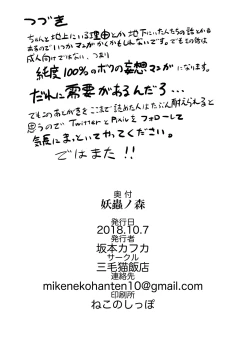 つづき
ちゃんと地上にいる理由とか地下にいた人たちの話とかも
あるのでいつかマンガかくかもしれないです。でもこの話は
成人向けではない、つまり
純度100%のボクの妄想マンガになります。
だれに需要があるんだろ…
でもこのあとがきをここまで読めた人はたぶん耐えられると
思うのでTwitterとPixivをフォローして
気長にまっていてやってください。
ではまた!!
奥付
妖蟲ノ森
発行日
2018.10.7
発行者
坂本カフカ
サークル
三毛猫飯店
連絡先
mikenekohanten10@gmail.com
印刷所
ねこのしっぽ